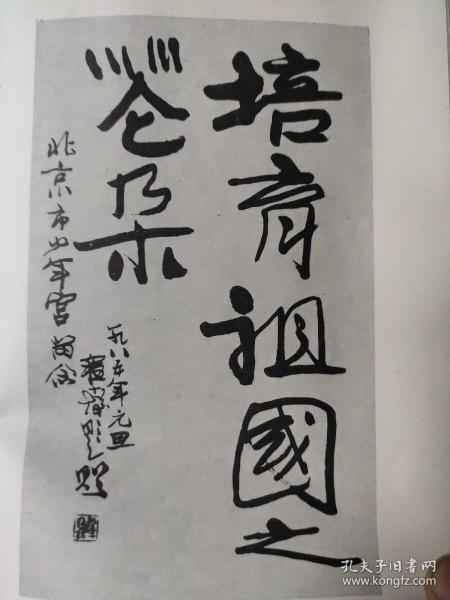 培育祖國之
花朵
北京市少年宫 留念
一九八五年元旦
题赠
孔夫子旧书网
www.kongfz.com